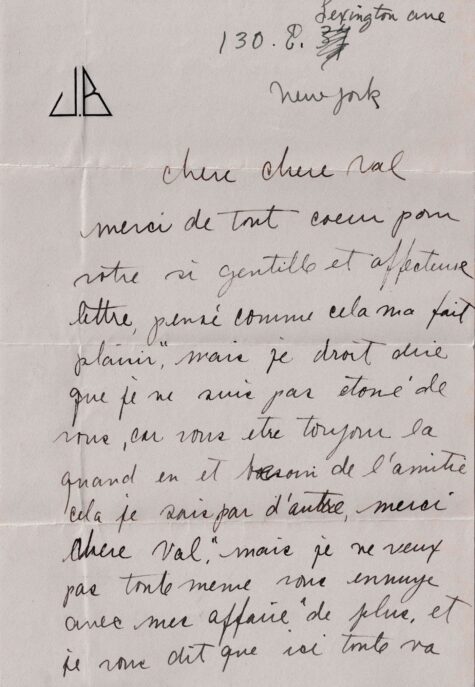 Lexington ave
130. E.
New york
J.B
chere chere Val
merci de tout coeur pour
votre si gentille et affecteuse
lettre, pensé comme cela ma fait
plaisir," mais je droit dire
que je ne suis pas étoné de
vous, car vous etre toujour la
quand en et besoin de l'amitié
cela je sais par d'autre, merci
chere Val," mais je ne veux
pas toute meme vous ennuye
avec mes affaire" de plus, et
je vous dit que ici toute va